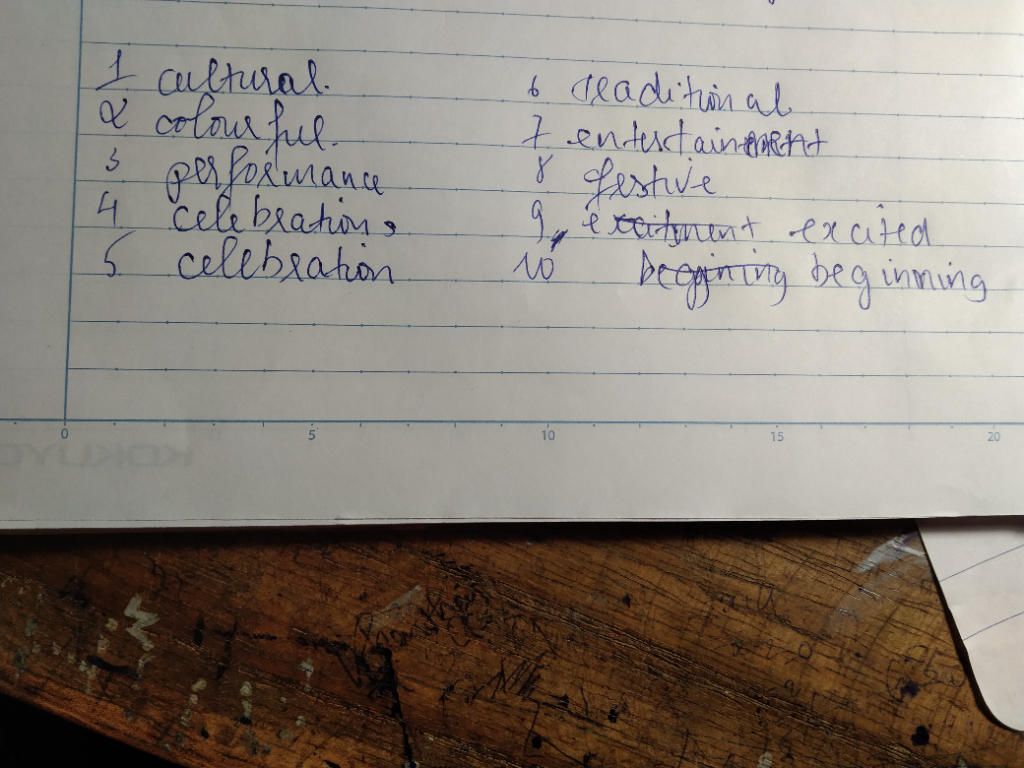 1 cultural.
2 colourful.
3 performance
4 celebrations
5 celebration
6 readitional
7 entertainment
8 festive
9, excitment excited
10 beggining beginning
0 5 10 15 20
KOKUYO